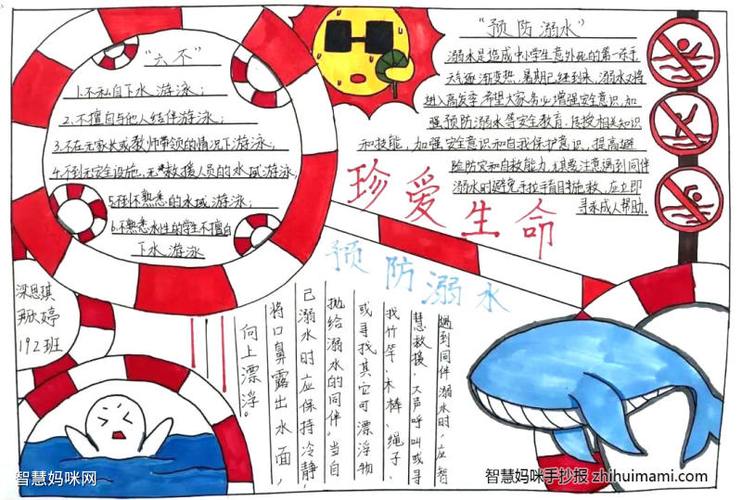 "六不"
1.不私自下水游泳；
2.不擅自与他人结伴游泳；
3.不在无家长或教师带领的情况下游泳；
4.不到无安全设施、无救援人员的水域游泳；
5.不到不熟悉的水域游泳；
6.不熟悉水性的学生不擅自
下水游泳
"预防溺水"
溺水是造成中小学生意外死的第一杀手,
天气逐渐变热，暑期已经到来，溺水又将
进入高发季,希望大家务必增强安全意识,加
强预防溺水等安全教育,传授相关知识
和技能，加强安全意识和自我保护意识，提高避
险防灾和自救能力,尤其要注意遇到同伴
溺水时避免手拉手盲目施救，应立即
寻求成人帮助.
珍爱生命
预防溺水
遇到同伴溺水时，应智
慧救援，大声呼叫或寻
找竹竿、木棒、绳子、
或寻找其它可漂浮物
抛给溺水的同伴，当自
己溺水时应保持冷静，
将口鼻露出水面，
向上漂浮。
梁思琪
欣婷
192班
智慧妈咪网
智慧妈咪手抄报 zhihuimami.com